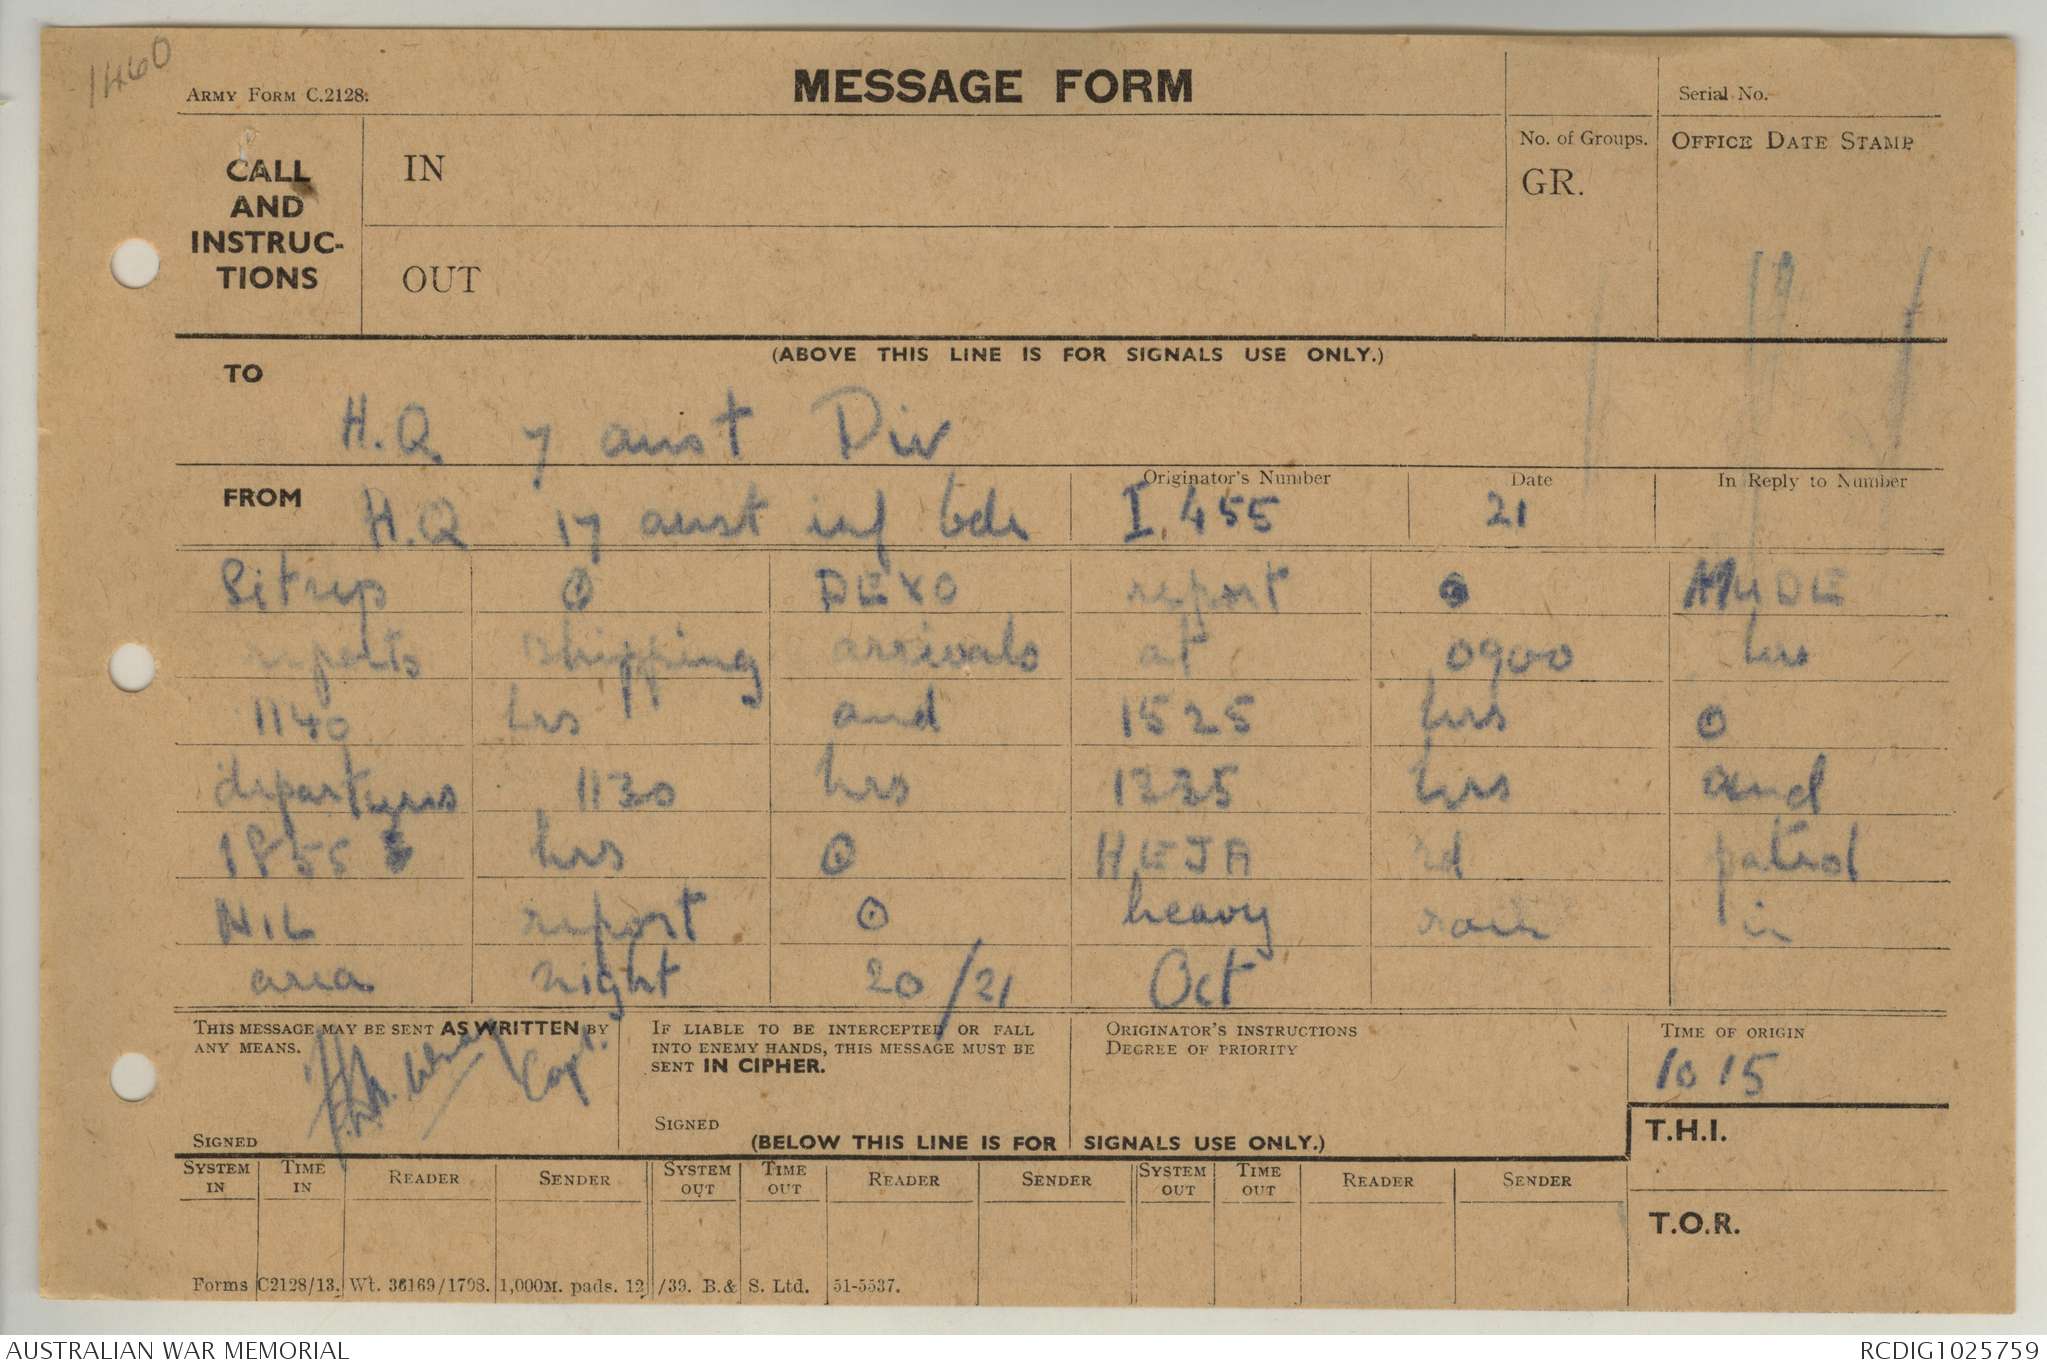 1460
ARMY FORM C.2128.
MESSAGE FORM
Serial No.
CALL
AND
INSTRUC-
TIONS
IN
OUT
No. of Groups.
GR.
OFFICE DATE STAMP
(ABOVE THIS LINE IS FOR SIGNALS USE ONLY.)
TO
H.Q. 7 aust Div
FROM H.Q 17 aust inf bde
Originator's Number I 455
Date 21
In Reply to Number
Sitrep ⊙ DEXO report ⊙ HYDE
reports shipping arrivals at 0900 hrs
1140 hrs and 1525 hrs ⊙
departures 1130 hrs 1335 hrs and
1855 hrs ⊙ HEJA rd patrol
NIL report ⊙ heavy rain in
area night 20/21 Oct
THIS MESSAGE MAY BE SENT AS WRITTEN BY
ANY MEANS.
Capt.
SIGNED
IF LIABLE TO BE INTERCEPTED OR FALL
INTO ENEMY HANDS, THIS MESSAGE MUST BE
SENT IN CIPHER.
SIGNED
ORIGINATOR'S INSTRUCTIONS
DEGREE OF PRIORITY
TIME OF ORIGIN
1015
(BELOW THIS LINE IS FOR SIGNALS USE ONLY.)
T.H.I.
SYSTEM IN TIME IN READER SENDER SYSTEM OUT TIME OUT READER SENDER SYSTEM OUT TIME OUT READER SENDER
T.O.R.
Forms C2128/13. Wt. 36169/1798. 1,000M. pads. 12/39. B.& S. Ltd. 51-5537.
AUSTRALIAN WAR MEMORIAL
RCDIG1025759